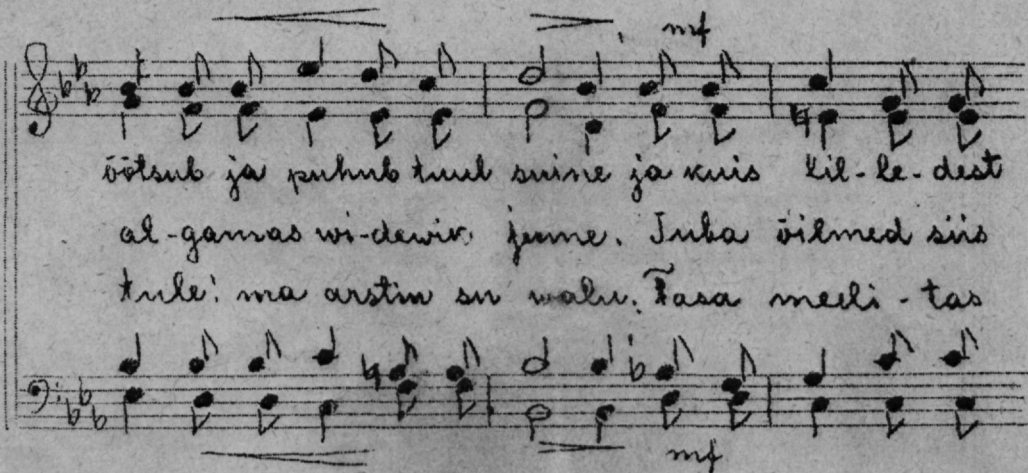 mf
öötsub ja puhub tuul suine ja kuis lil-le-dest
al-gamas wi-dewik jume. Juba õilmed siis
tule! ma arstin su walu. Tasa meeli-tas
mf